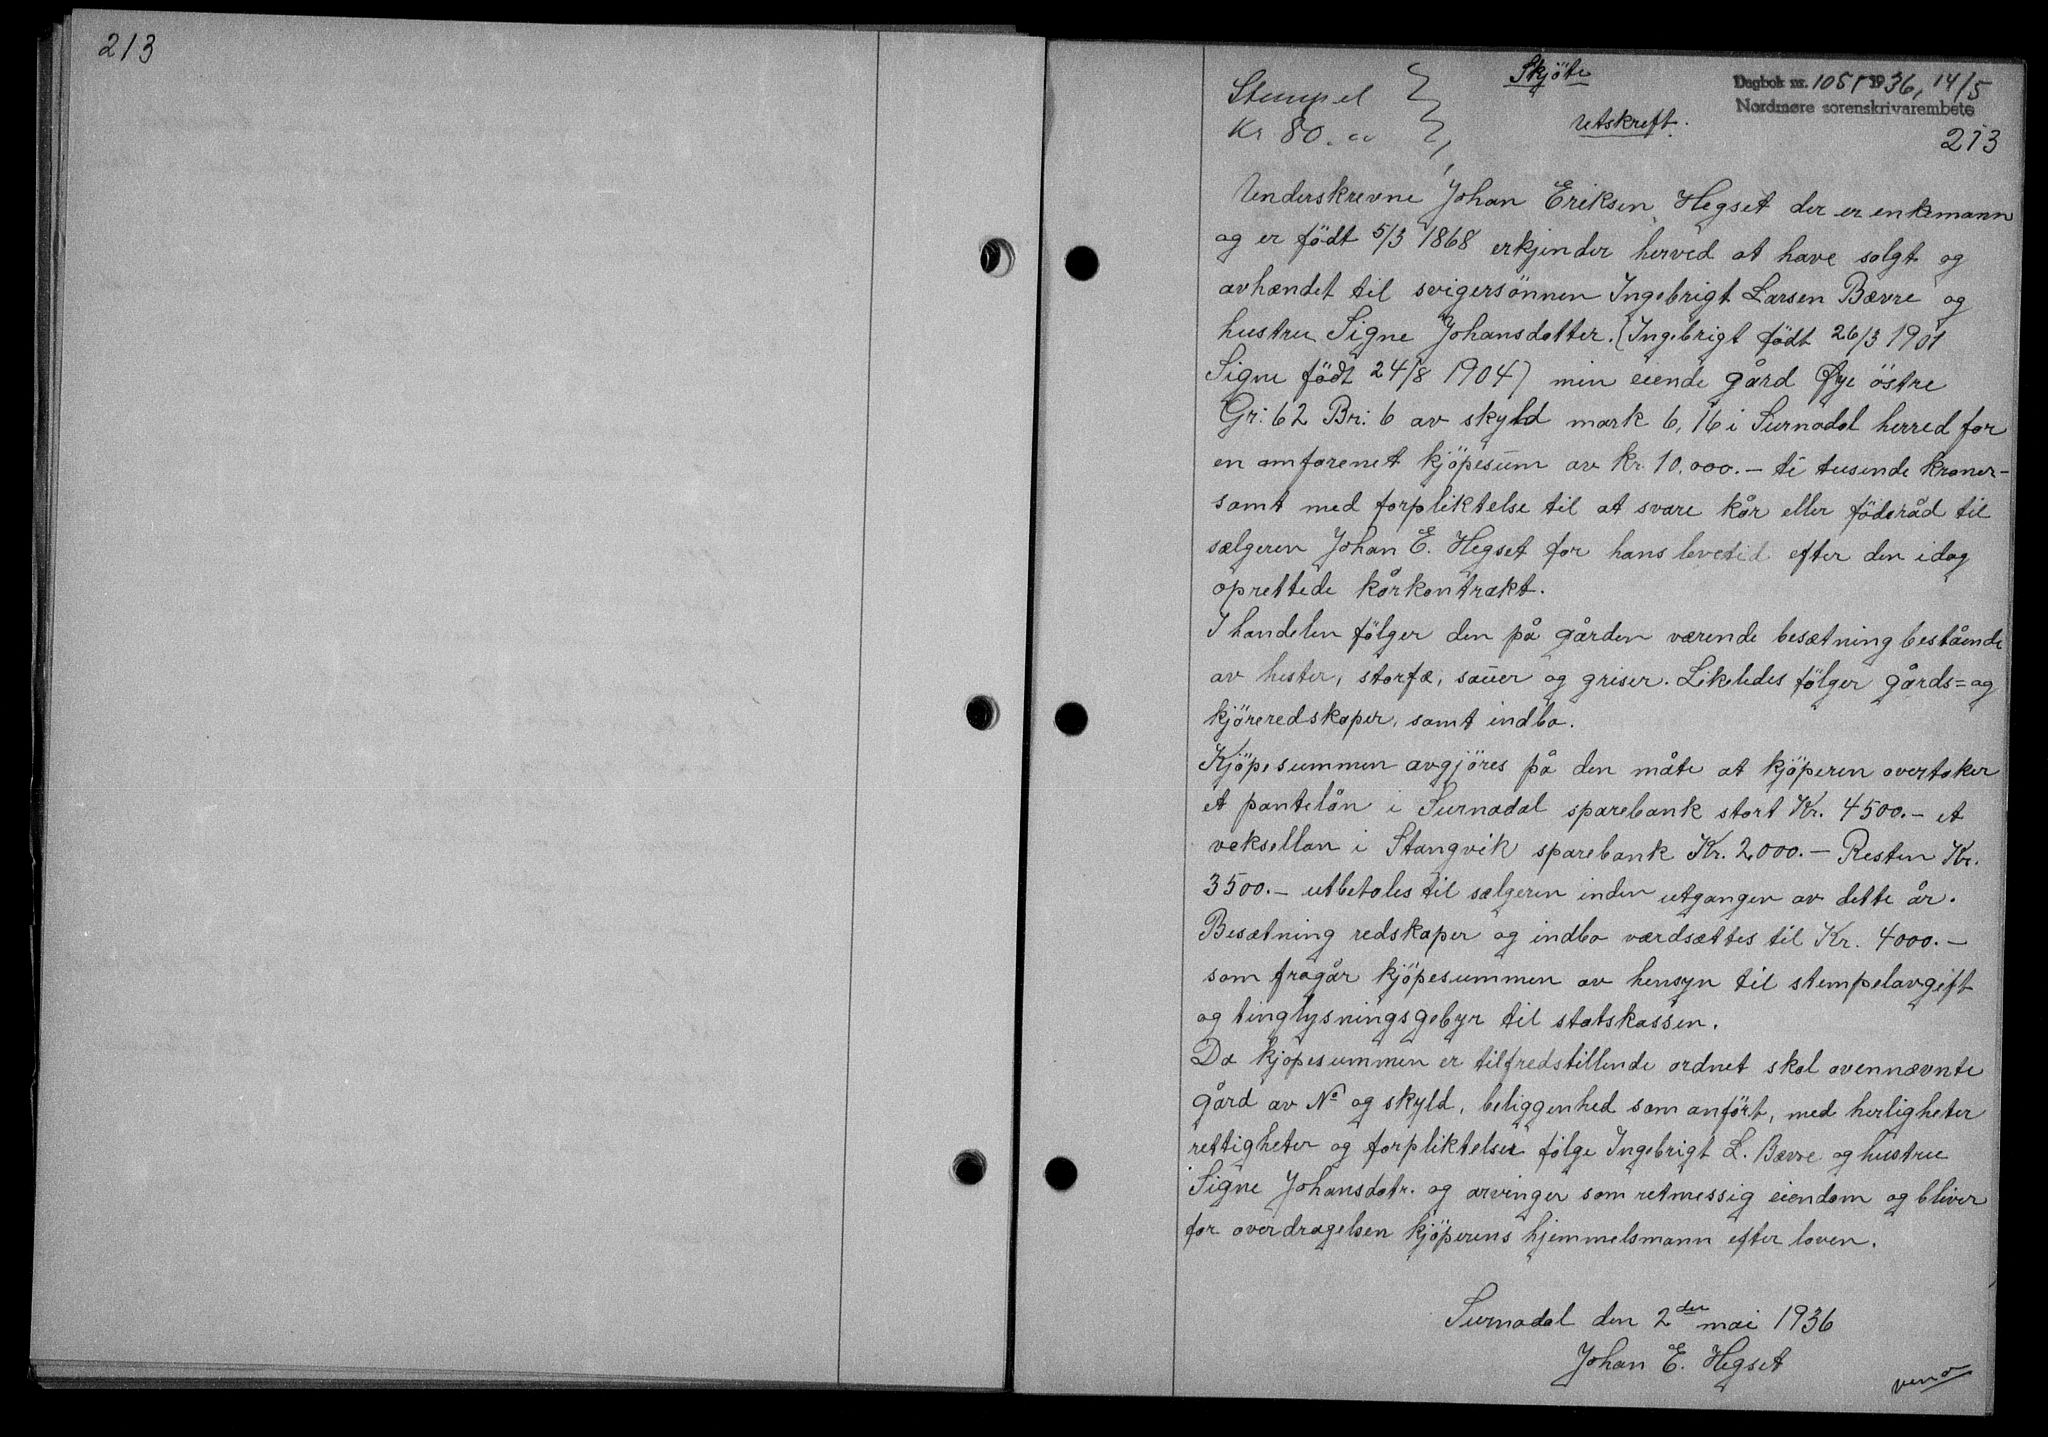 213
Skjöte
Dagbok nr. 1051 1936, 14/5
Nordmøre sorenskrivarembete
Stempel
Kr 80.00
Utskreft.
213
Underskrevne Johan Eriksen Hegset der er enkemann
og er födt 5/3 1868 erkjender herved at have solgt og
avhændet til svigersönnen Ingebrigt Larsen Bævre og
hustru Signe Johansdotter. (Ingebrigt födt 26/3 1901
Signe födt 24/8 1904) min eiende gård Øye östre
Gr: 62 Br: 6 av skyld mark 6,16 i Surnadal herred for
en omforenet kjöpesum av kr. 10.000.- ti tusende kroner-
samt med forpliktelse til at svare kår eller föderåd til
sælgeren Johan E. Hegset for hans levetid efter den idag
oprettede kårkontrakt.
I handelen fölger den på gården værende besætning bestående
av hester, storfæ, sauer og griser. Likeledes fölger gårds= og
kjöreredskaper, samt indbo.
Kjöpesummen avgjöres på den måte at kjöperen overtaker
et pantelån i Surnadal sparebank stort Kr. 4500.- et
veksellån i Stangvik sparebank Kr. 2000.- Resten Kr.
3500.- utbetales til sælgeren inden utgangen av dette år.
Besætning redskaper og indbo værdsættes til Kr. 4000.-
som fragår kjöpesummen av hensyn til stempelavgift
og tinglysningsgebyr til statskassen.
Da kjöpesummen er tilfredstillende ordnet skal ovennævnte
gård av No og skyld, beliggenhed som anfört, med herligheter
rettigheter og forpliktelser fölge Ingebrigt L. Bævre og hustru
Signe Johansdotr. og arvinger som retmessig eiendom og bliver
for overdragelsen kjöperens hjemmelsmann efter loven.
Surnadal den 2den mai 1936
Johan E. Hegset